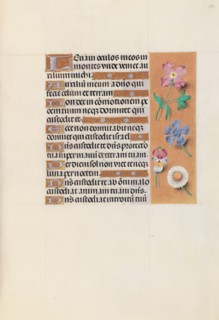 Leuaui oculos meos in
montes unde ueniet au
xilium michi.
Auxilium meum a dno qui
fecit celum et terram.
Non det in cōmotionem pe
dem tuum neqz dormitet qui
custodit te.
Ecce non dormitabit neqz
dormiet qui custodit israel.
Dns custodit te dns protectio
tua super manum dexteram tuam.
Per diem sol non uret te neqz
luna per noctem.
Dns custodit te ab omni malo
custodiat animam tuam dns.
Dns custodiat introitum tuū